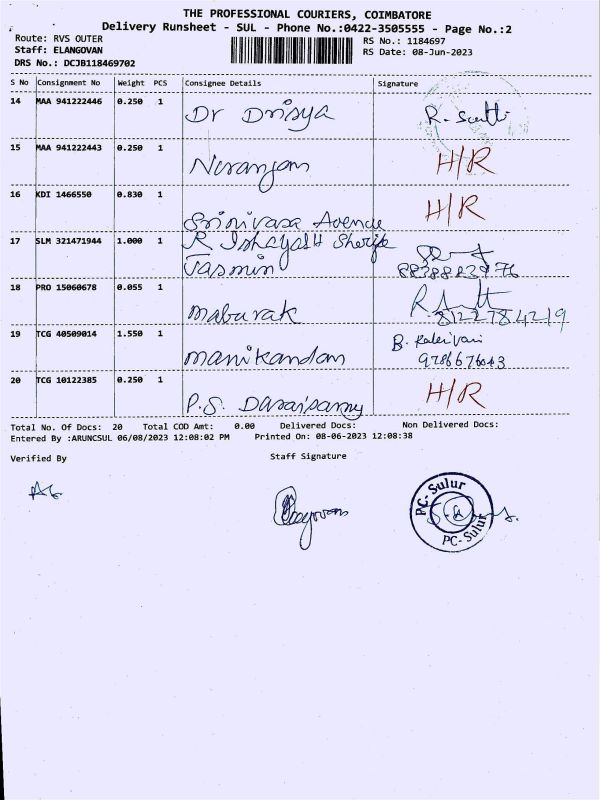 THE PROFESSIONAL COURIERS, COIMBATORE
Delivery Runsheet - SUL - Phone No.:0422-3505555 - Page No.:2
Route: RVS OUTER
RS No.: 1184697
Staff: ELANGOVAN
RS Date: 08-Jun-2023
DRS No.: DCJB118469702
S No Consignment No Weight PCS Consignee Details Signature
14 MAA 941222446 0.250 1 Dr Drisya R.
15 MAA 941222443 0.250 1 Niranjan H/R
16 KDI 1466550 0.830 1 Srinivasa Avenue H/R
17 SLM 321471944 1.000 1 R. Sherije
Jasmin
18 PRO 15060678 0.055 1 Mabarak R.
8122784219
19 TCG 40509014 1.550 1 Manikandan B. Kalaivani
20 TCG 10122385 0.250 1 P.S. Daraisamy H/R
Total No. Of Docs: 20 Total COD Amt: 0.00 Delivered Docs: Non Delivered Docs:
Entered By :ARUNCSUL 06/08/2023 12:08:02 PM Printed On: 08-06-2023 12:08:38
Verified By Staff Signature
PC-Sulur
PC-Sulur